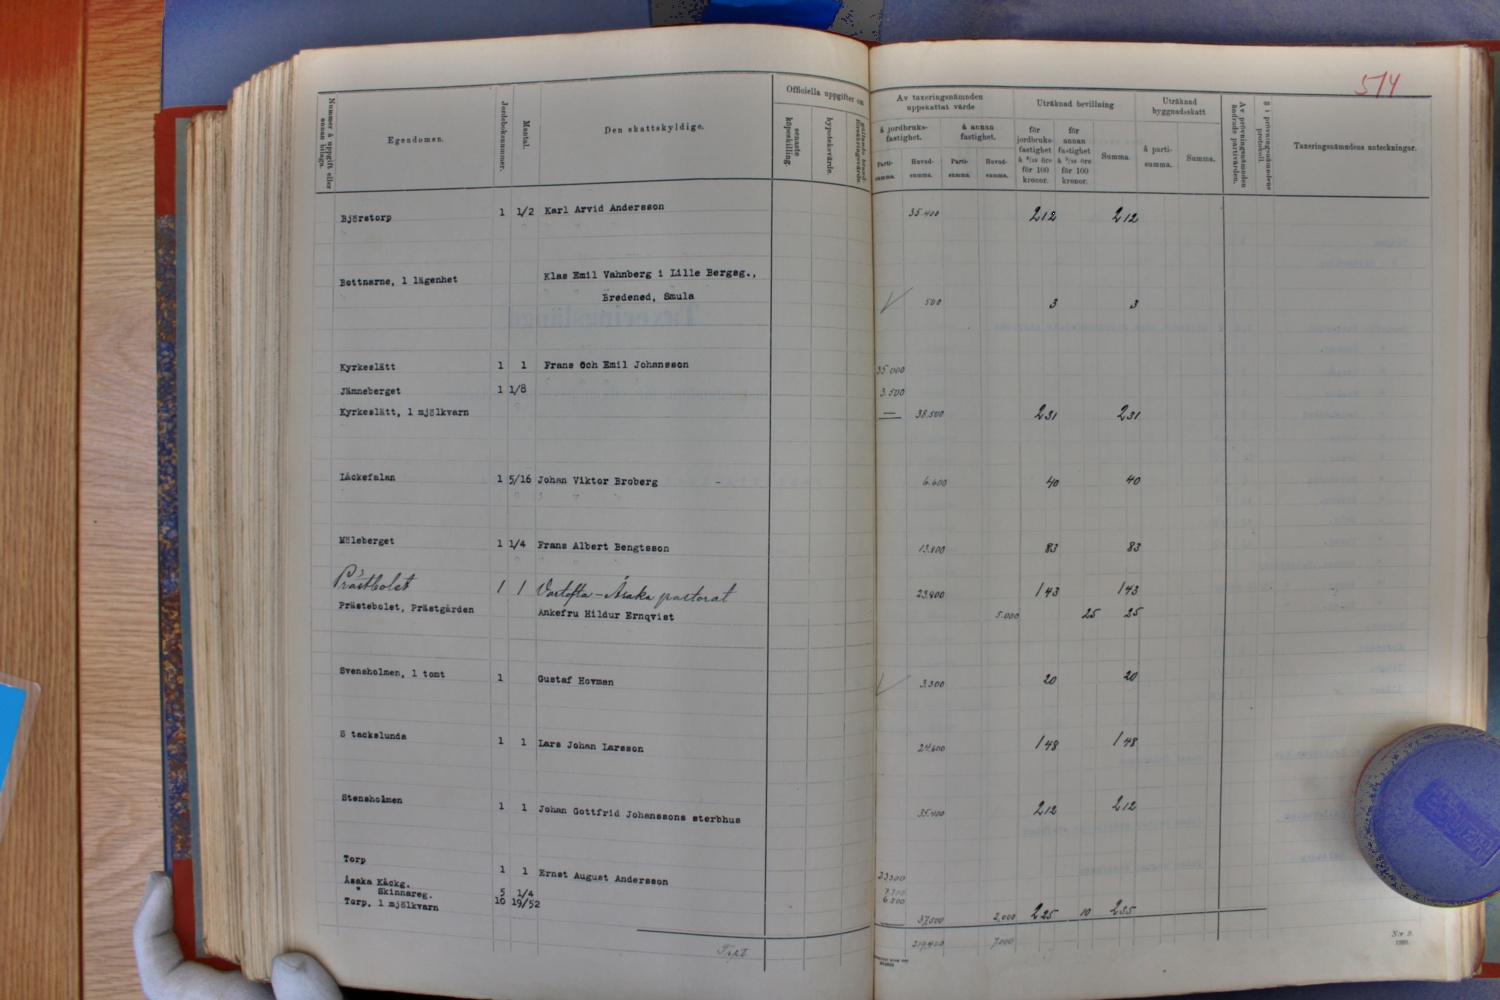 514
Nummer å uppgift eller annan bilaga.
Egendomen.
Jordeboksnummer.
Mantal.
Den skattskyldige.
Officiella uppgifter om
senaste köpeskilling.
hypoteksvärde.
Av taxeringsnämnden uppskattat värde
å jordbruksfastighet.
å annan fastighet.
Partisumma.
Huvudsumma.
Partisumma.
Huvudsumma.
Uträknad bevillning
för jordbruksfastighet å 6/10 öre för 100 kronor.
för annan fastighet å 5/10 öre för 100 kronor.
Summa.
Uträknad byggnadsskatt
å partisumma.
Summa.
Av prövningsnämnden ändrade partivärden.
§ i prövningsnämndens protokoll.
Taxeringsnämndens anteckningar.
Björstorp 1 1/2 Karl Arvid Andersson 35.400 212 212
Bottnarne, 1 lägenhet Klas Emil Vahnberg i Lille Bergsg.,
Bredened, Smula 500 3 3
Kyrkeslätt 1 1 Frans och Emil Johansson 35.000
Jämneberget 1 1/8 3.500
Kyrkeslätt, 1 mjölkvarn — 38.500 231 231
Låckefalan 1 5/16 Johan Viktor Broberg 6.600 40 40
Möleberget 1 1/4 Frans Albert Bengtsson 13.800 83 83
Prästbolet 1 1 Vartofta-Åsaka pastorat 23.900 143 143
Prästebolet, Prästgården Änkefru Hildur Ernqvist 5.000 25 25
Svensholmen, 1 tomt 1 Gustaf Hovman 3.300 20 20
S tackslunda 1 1 Lars Johan Larsson 24.600 148 148
Stensholmen 1 1 Johan Gottfrid Johanssons sterbhus 35.400 212 212
Torp 1 1 Ernst August Andersson 23.300
Åsaka Käckg. 5 1/4
" Skinnareg. 10 19/52 6.800
Torp, 1 mjölkvarn 37.500 2.000 225 10 235
Trpt 219.400 7.000
N:r 9.